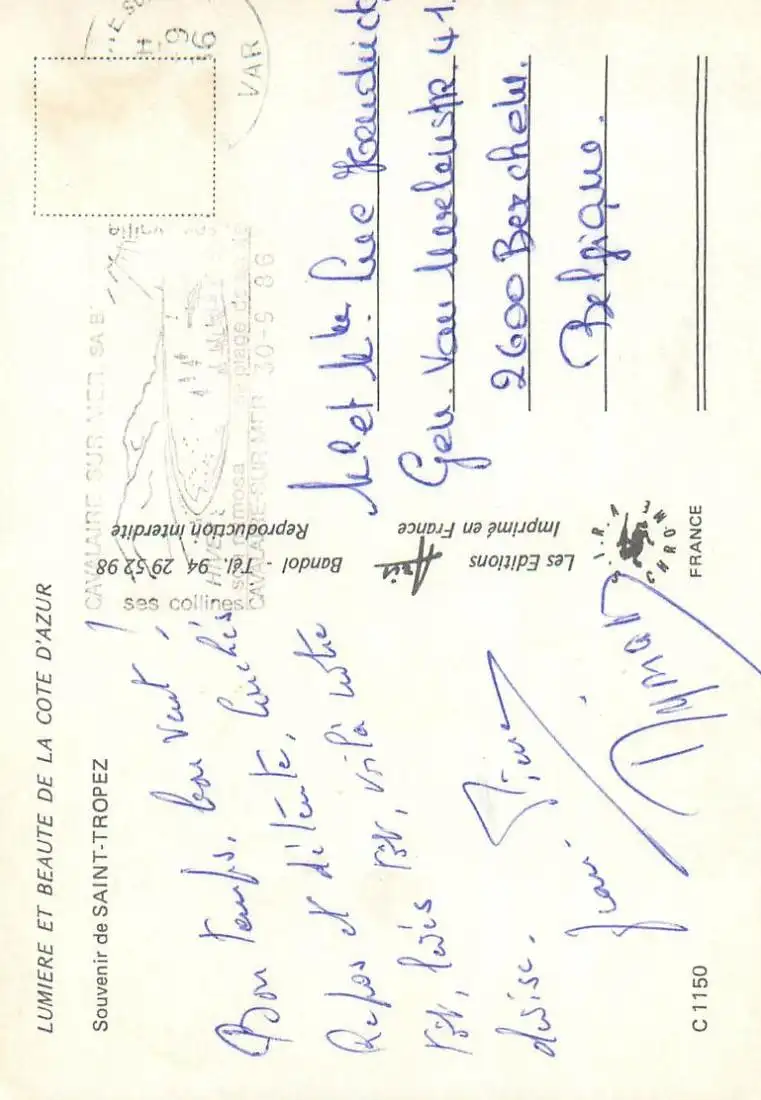 LUMIERE ET BEAUTE DE LA COTE D'AZUR
Souvenir de SAINT-TROPEZ
Bon temps, bon vent !
Repos et détente, couchés
tôt, levés tôt, voilà notre
devise.
Jean-Pierre
C 1150
CAVALAIRE SUR MER
ses collines
CAVALAIRE-SUR-MER 30-5 86
plage de
VAR
Reproduction interdite
Bandol - Tél. 94 29 52 98
Les Editions
Imprimé en France
CHROME
FRANCE
Mr et Mme Luc
Gen. Van Merlenstr 41
2600 Berchem.
Belgique.